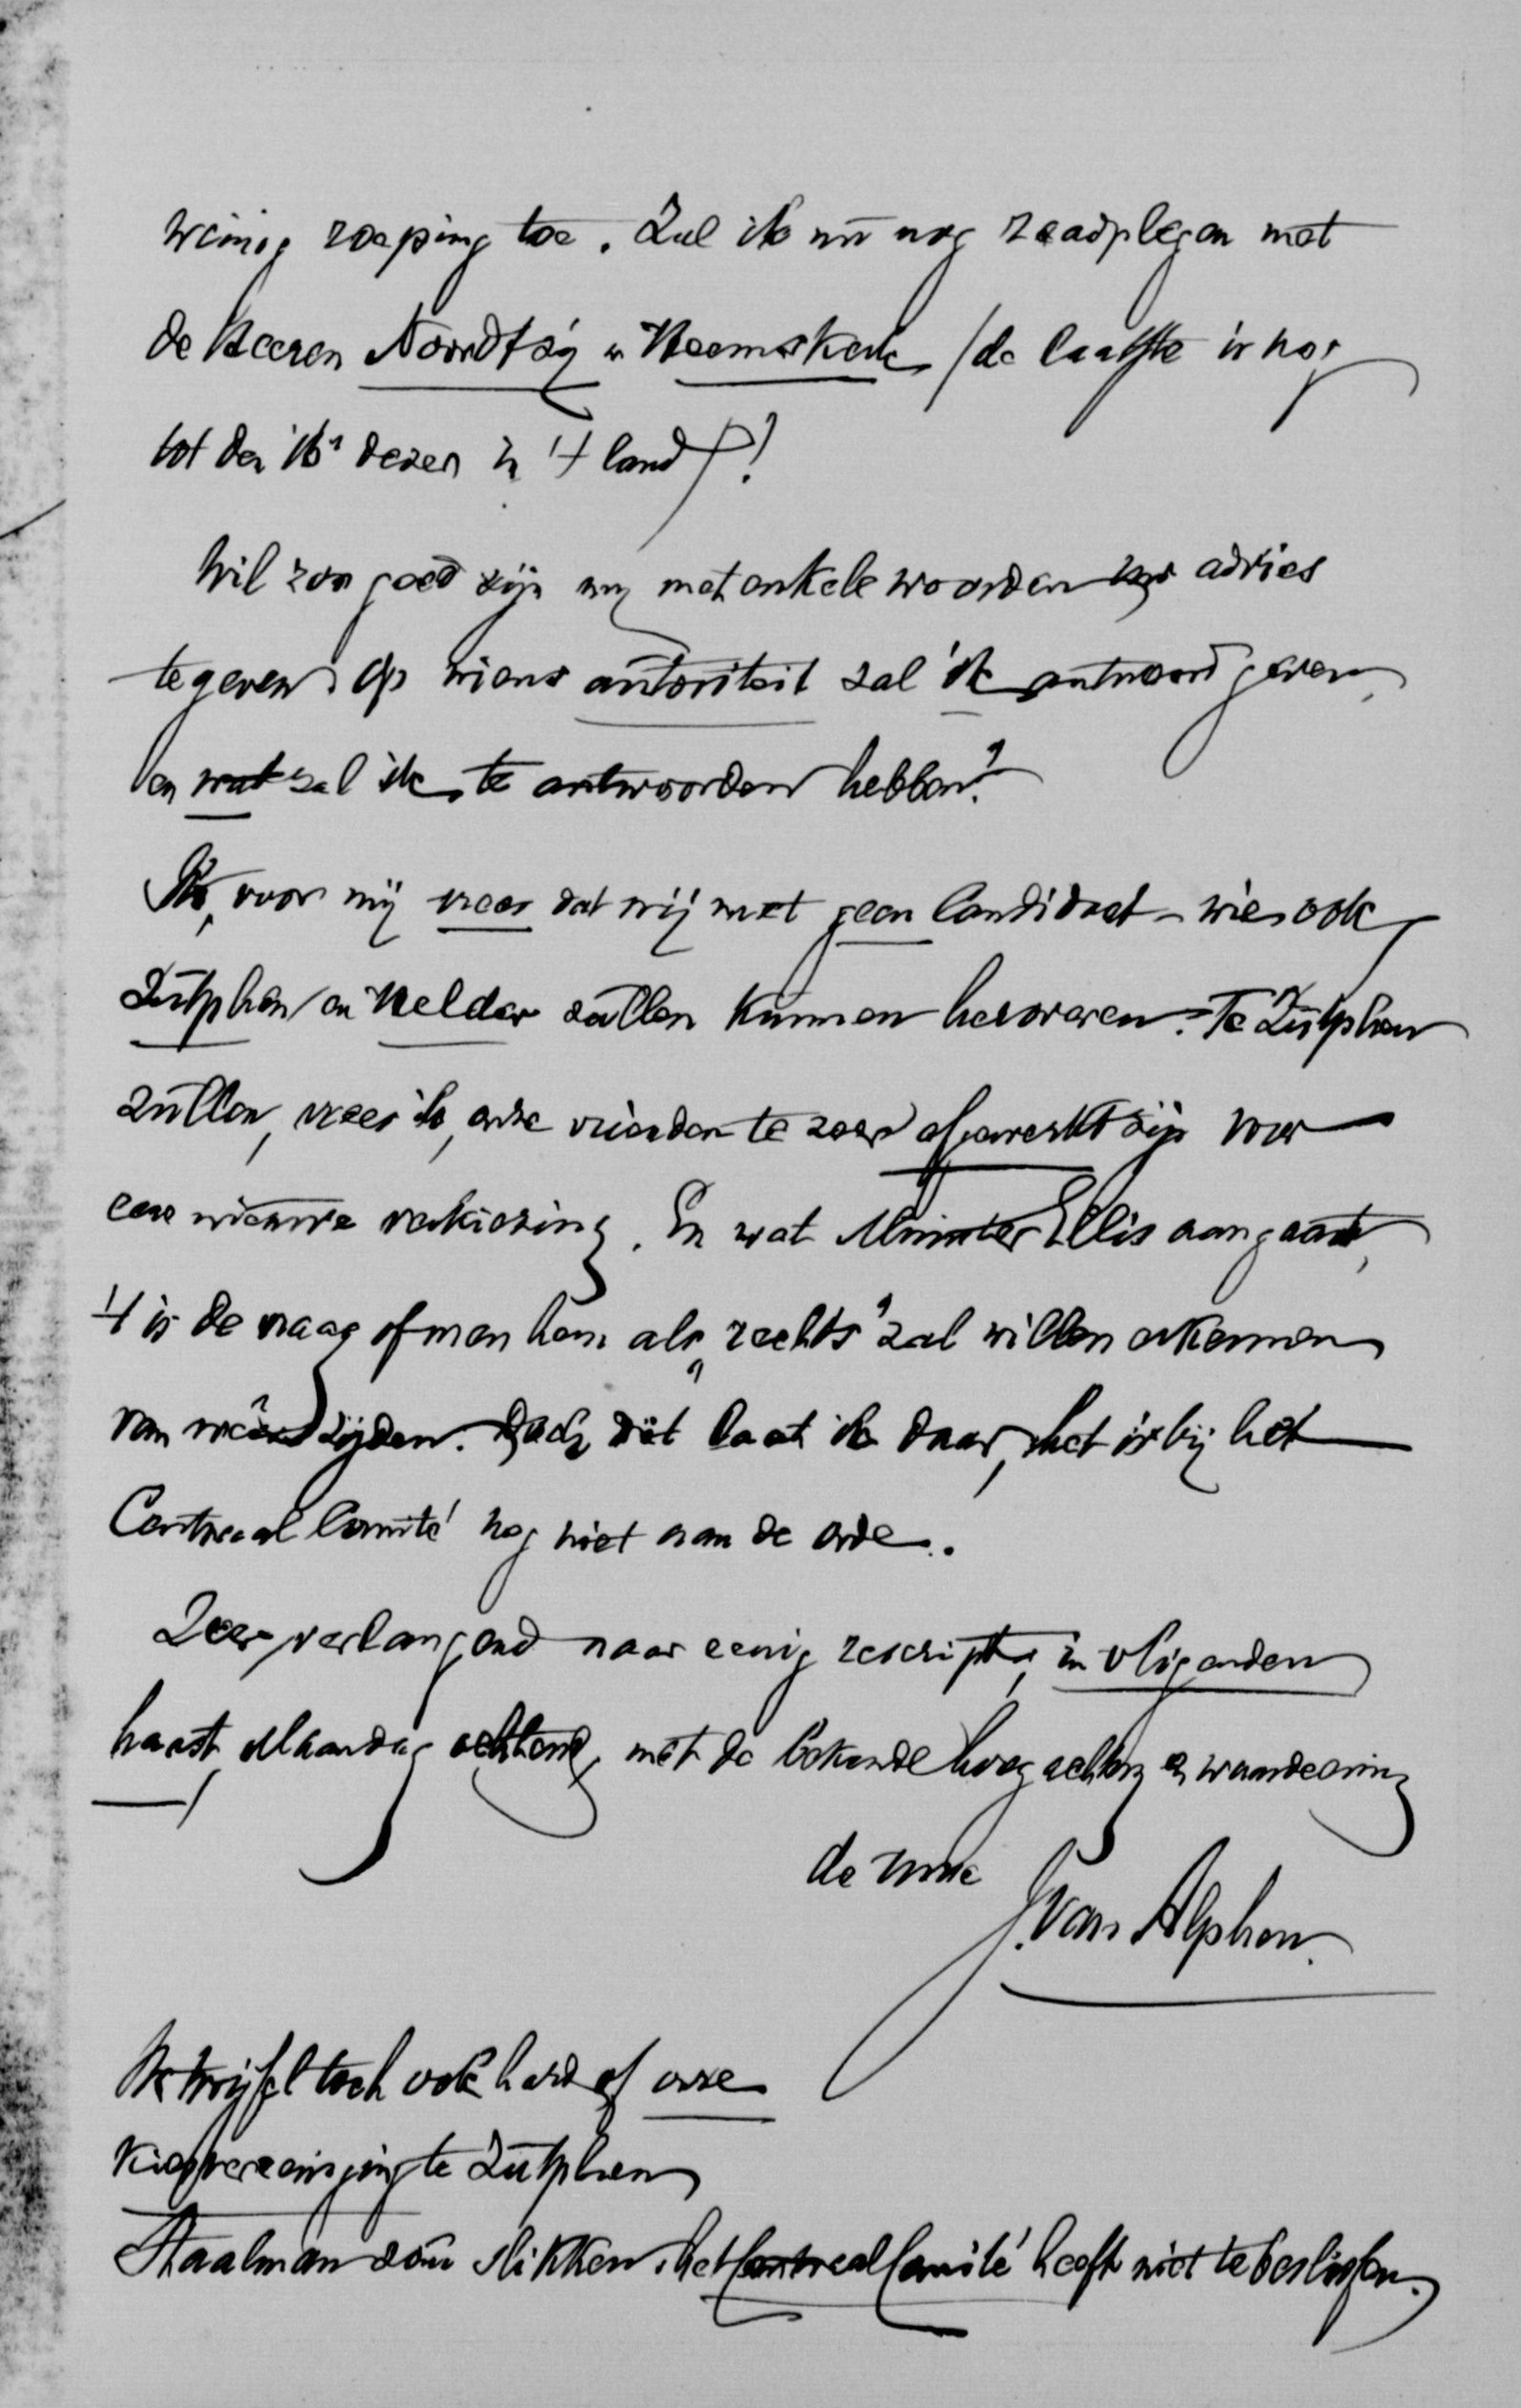 weinig roeping toe. Zal ik nu nog raadplegen met
de Heeren Noordtzij en Heemskerk (de laatste is nog
tot den 16n dezer in 't land)?!
Wil zoo goed zijn mij met enkele woorden uw advies
te geven. Op wiens autoriteit zal ik antwoord geven
en wat zal ik te antwoorden hebben?
Ik, voor mij vrees dat wij met geen Candidaat - wie ook
Zutphen en Helder zullen kunnen heroveren. Te Zutphen
zullen, vrees ik, onze vrienden te zeer afgewerkt zijn voor
eene nieuwe verkiezing. En wat Minister Ellis aangaat,
't is de vraag of men hem als „rechts" zal willen erkennen
van zijden. Doch dit laat ik daar, het is bij het
Centraal Comité nog niet aan de orde.
Zeer verlangend naar eenig rescript, in vliegenden
haast, Maandag ochtend, met de bekende hoogachting en waardeering
de Uwe
J. van Alphen.
Ik twijfel toch ook hard of onze
Kiesvereeniging te Zutphen
Staalman zou slikken. het Centraal Comité heeft niet te beslissen.